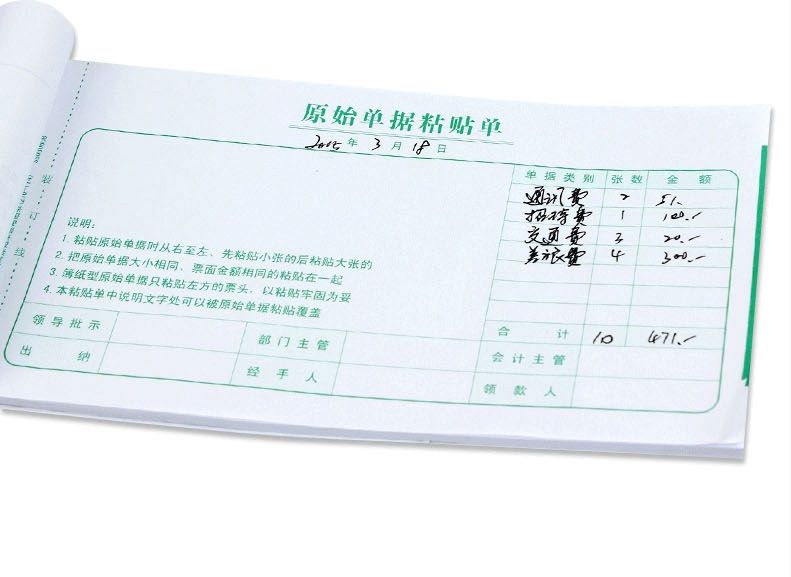 原始单据粘贴单
2015年3月18日
单据类别 张数 金额
通讯费 2 51.-
招待费 1 100.-
交通费 3 20.-
差旅费 4 300.-
合计 10 471.-
说明:
1. 粘贴原始单据时从右至左、先粘贴小张的后粘贴大张的
2. 把原始单据大小相同、票面金额相同的粘贴在一起
3. 簿纸型原始单据只粘贴左方的票头，以粘贴牢固为妥
4. 本粘贴单中说明文字处可以被原始单据粘贴覆盖
领导批示 部门主管 会计主管
出纳 经手人 领款人
装订线